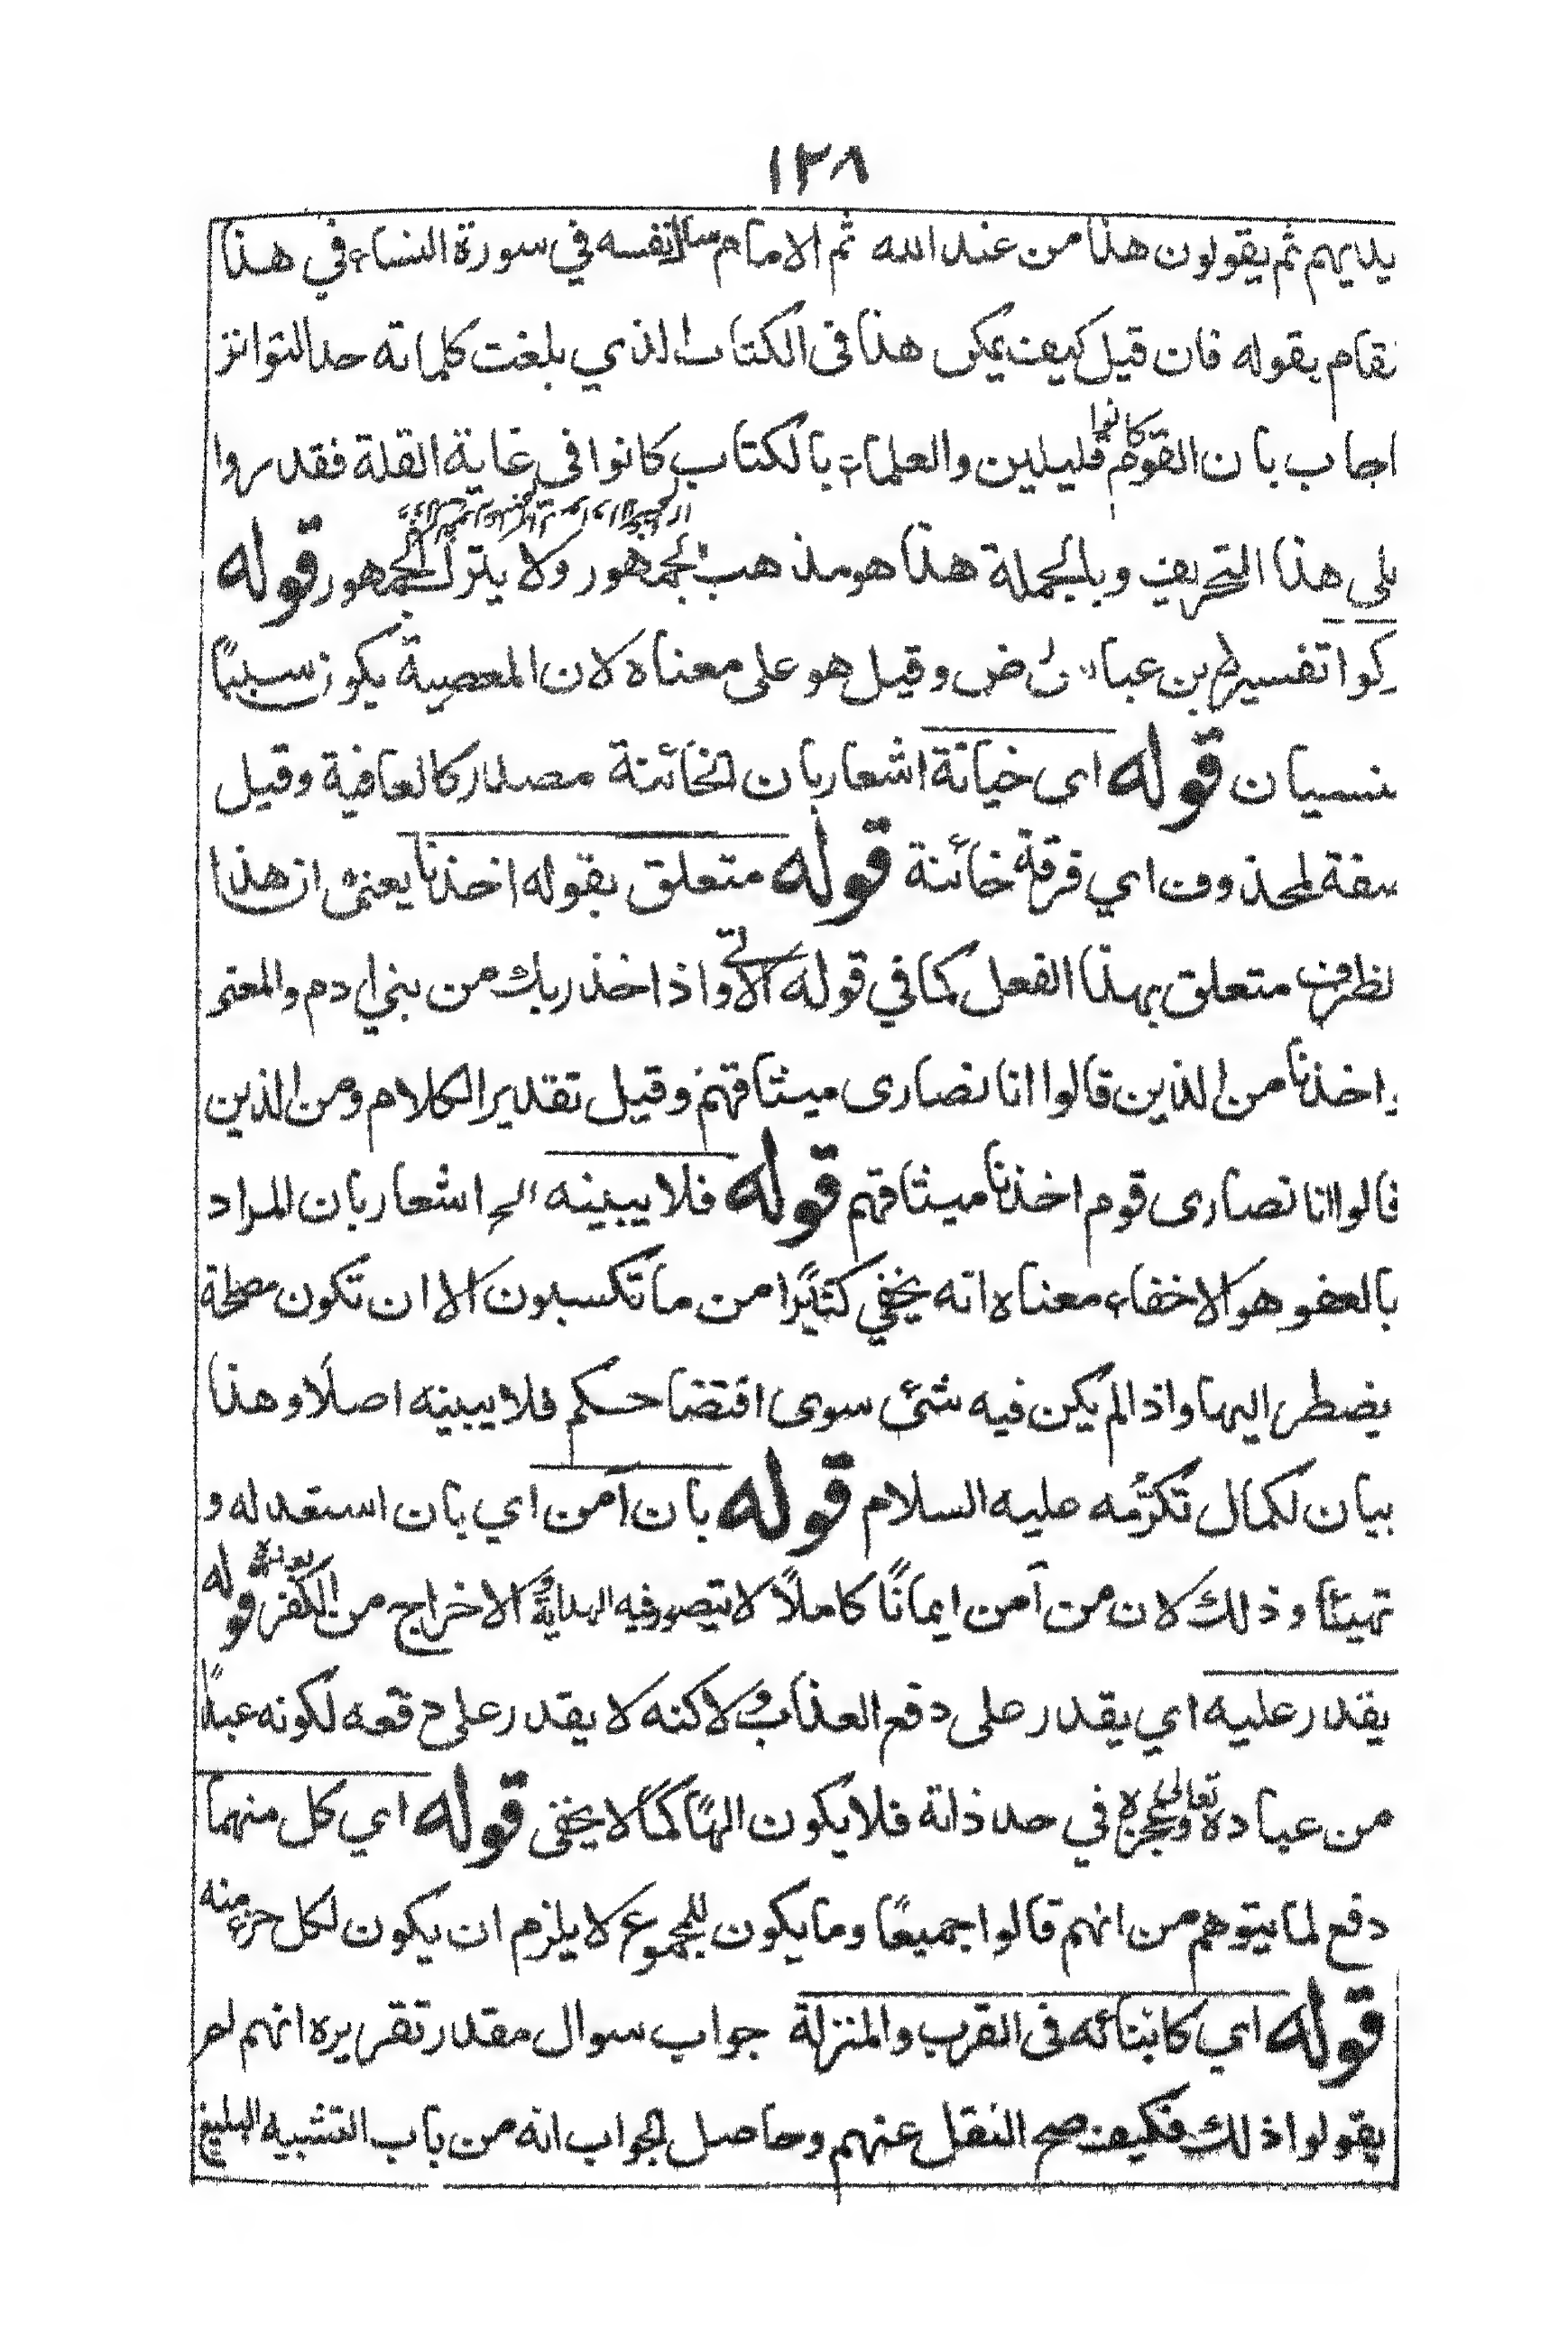 ١٢٨
يديهم ثم يقولون هذا من عند الله ثم الامام سأل نفسه في سورة النساء في هذا
لمقام بقوله فان قيل كيف يمكن هذا فى الكتاب الذي بلغت كلماته حد التواتر
اجاب بان القوم كانوا قليلين والعلماء بالكتاب كانوا فى غاية القلة فقدروا
على هذا التحريف وبالجملة هذا هو مذهب الجمهور ولا يترك الجمهور قوله
ركوا تفسير ابن عباس رض وقيل هو على معناه لان المعصية يكون سببًا
لنسيان قوله اى خيانة اشعار بان الخائنة مصدر كالعافية وقيل
صفة لمحذوف اي فرقة خائنة قوله متعلق بقوله اخذنا يعنى ان هذا
لظرف متعلق بهذا الفعل كما في قوله الآتى واذ اخذ ربك من بني ادم والمعنى
واخذنا من الذين قالوا انا نصارى ميثاقهم وقيل تقدير الكلام ومن الذين
قالوا انا نصارى قوم اخذنا ميثاقهم قوله فلا يبينه الخ اشعار بان المراد
بالعفو هو الاخفاء معناه انه يخفي كثيرًا من ما تكسبون الا ان تكون مصلحة
يضطر اليها واذا لم يكن فيه شئ سوى افتضاحكم فلا يبينه اصلًا وهذا
بيان لكمال تكرّمه عليه السلام قوله بان آمن اي بان استعد له و
تهيئا وذلك لان من آمن ايمانًا كاملًا لا يتصور فيه الهداية والاخراج من الكفر قوله
يقدر عليه اي يقدر على دفع العذاب ولاكنه لا يقدر على دفعه لكونه عبدًا
من عباده تعالى وعجزه في حد ذاته فلا يكون الهًا كما لا يخفى قوله اي كل منهما
دفع لما يتوهم من انهم قالوا جميعًا وما يكون للمجموع لا يلزم ان يكون لكل جزء منه
قوله اي كابنائه فى القرب والمنزلة جواب سوال مقدر تقريره انهم لم
يقولوا ذلك فكيف صح النقل عنهم وحاصل الجواب انه من باب التشبيه البليغ